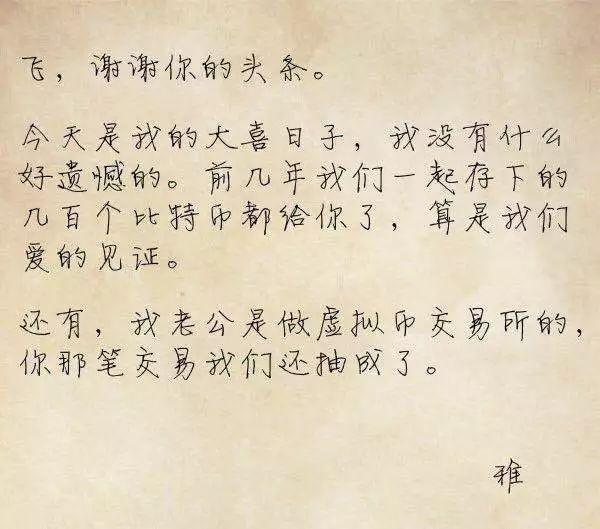 飞，谢谢你的头条。
今天是我的大喜日子，我没有什么
好遗憾的。前几年我们一起存下的
几百个比特币都给你了，算是我们
爱的见证。
还有，我老公是做虚拟币交易所的，
你那笔交易我们还抽成了。
雅